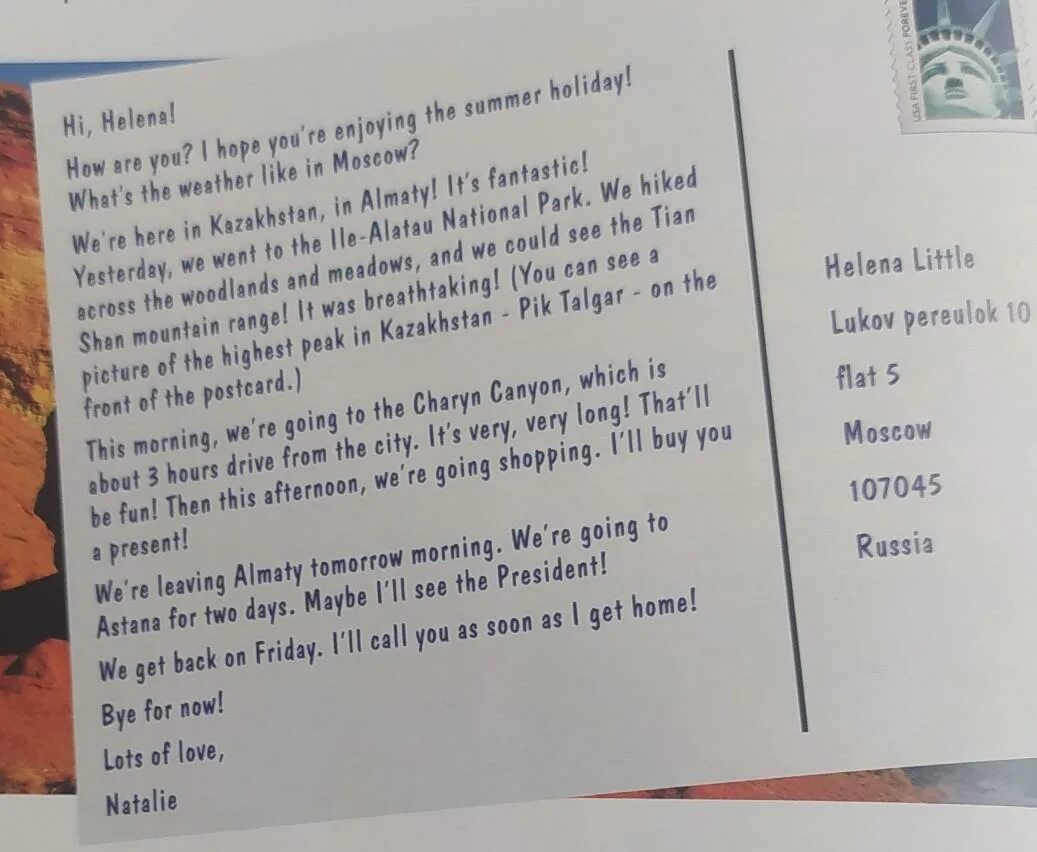 Hi, Helena!
How are you? I hope you're enjoying the summer holiday!
What's the weather like in Moscow?
We're here in Kazakhstan, in Almaty! It's fantastic!
Yesterday, we went to the Ile-Alatau National Park. We hiked
across the woodlands and meadows, and we could see the Tian
Shan mountain range! It was breathtaking! (You can see a
picture of the highest peak in Kazakhstan - Pik Talgar - on the
front of the postcard.)
This morning, we're going to the Charyn Canyon, which is
about 3 hours drive from the city. It's very, very long! That'll
be fun! Then this afternoon, we're going shopping. I'll buy you
a present!
We're leaving Almaty tomorrow morning. We're going to
Astana for two days. Maybe I'll see the President!
We get back on Friday. I'll call you as soon as I get home!
Bye for now!
Lots of love,
Natalie
USA FIRST-CLASS FOREVER
Helena Little
Lukov pereulok 10
flat 5
Moscow
107045
Russia